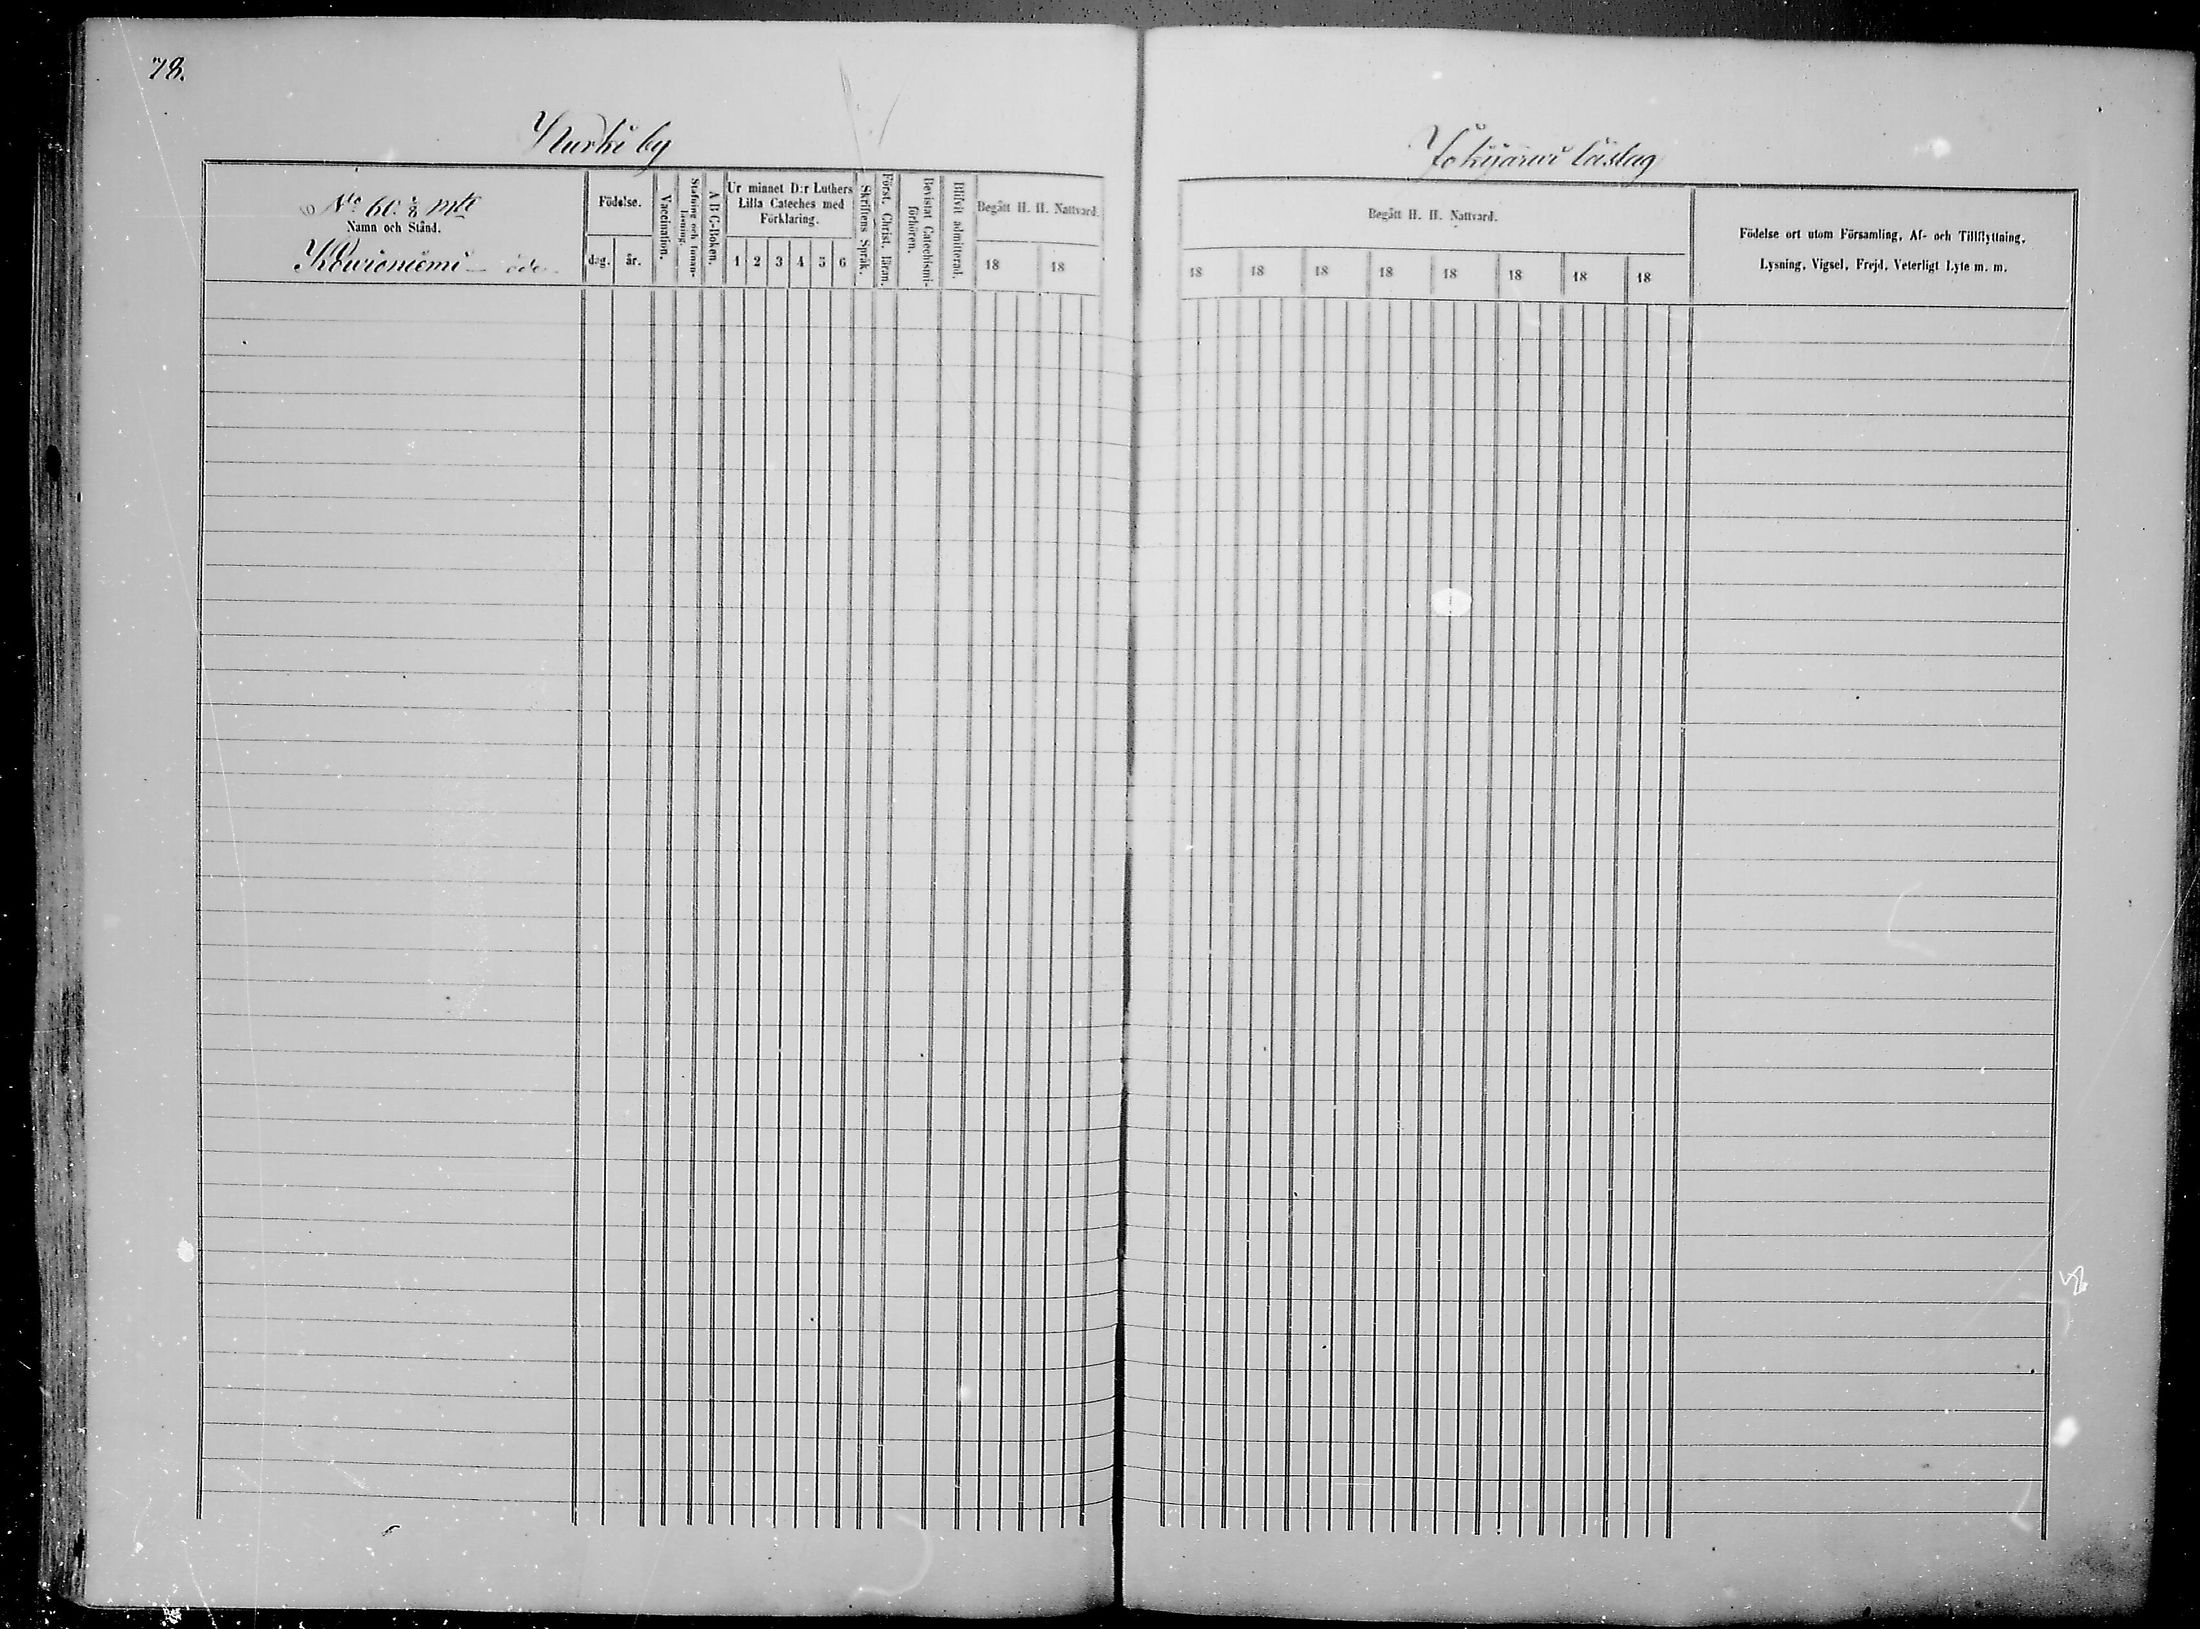 78.
Kurki by
Jokijärvi läslag
No 60. 1/8 mtl
Namn och Stånd.
Kowioniemi — öde.
Födelse.
dag. år.
Vaccination.
Stafning och Innan-läsning.
A B C-Boken.
Ur minnet D:r Luthers
Lilla Cateches med
Förklaring.
1 2 3 4 5 6
Skriftens Språk.
Först. Christ. läran.
Bevistat Catechismi-förhören.
Blifvit admitterad.
Begått H. H. Nattvard.
18 18
Begått H. H. Nattvard.
18 18 18 18 18 18 18 18
Födelse ort utom Församling, Af- och Tillflyttning,
Lysning, Vigsel, Frejd, Veterligt Lyte m. m.